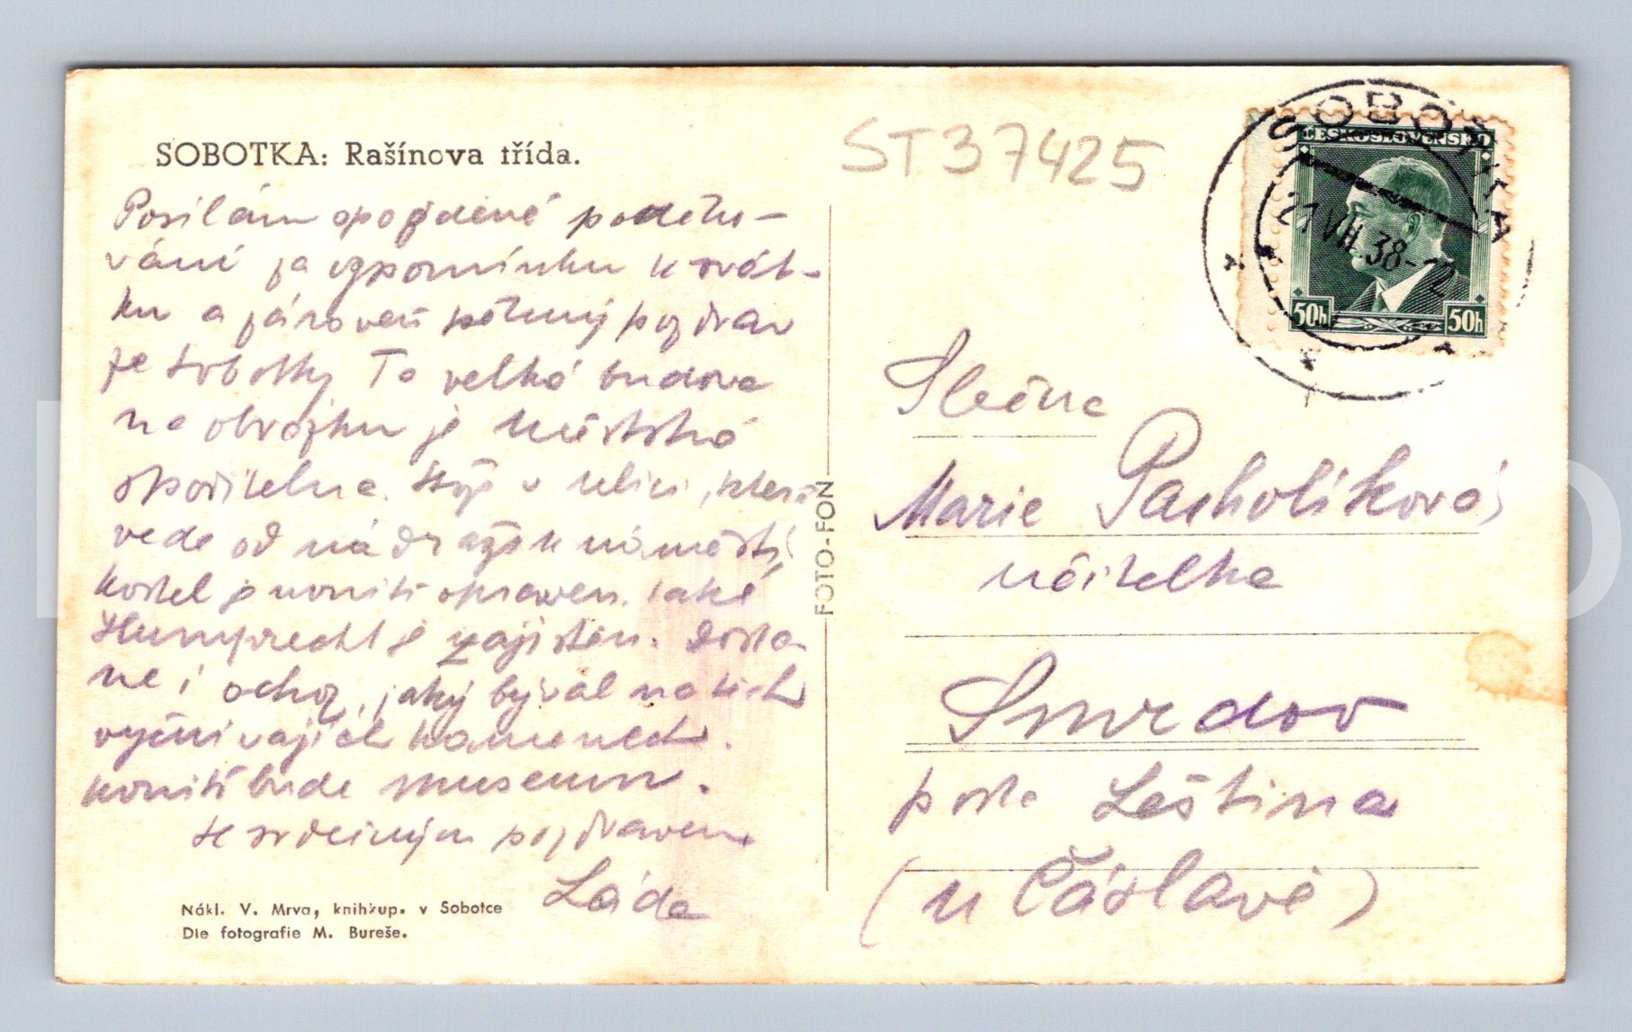 SOBOTKA: Rašínova třída.
Posílám opožděné poděko-
vání za vzpomínku k svát-
ku a zároveň pěkný pozdrav
ze Sobotky. Ta velká budova
na obrázku je Městská
spořitelna. Stojí v ulici, která
vede od nádraží k náměstí,
kostel je uvnitř opraven. také
Humprecht je zajištěn. Dosta-
ne i ochoz, jaký býval na těch
vyčnívajících kamenech.
Uvnitř bude museum.
Se srdečným pozdravem
Láda
Nákl. V. Mrva, knihkup. v Sobotce
Dle fotografie M. Bureše.
FOTO-FON
ST37425
SOBOTKA
21.VII.38-12
ČESKOSLOVENSKO
50h 50h
Slečna
Marie Pacholíková
učitelka
Smrdov
pošta Leština
(u Čáslavě)